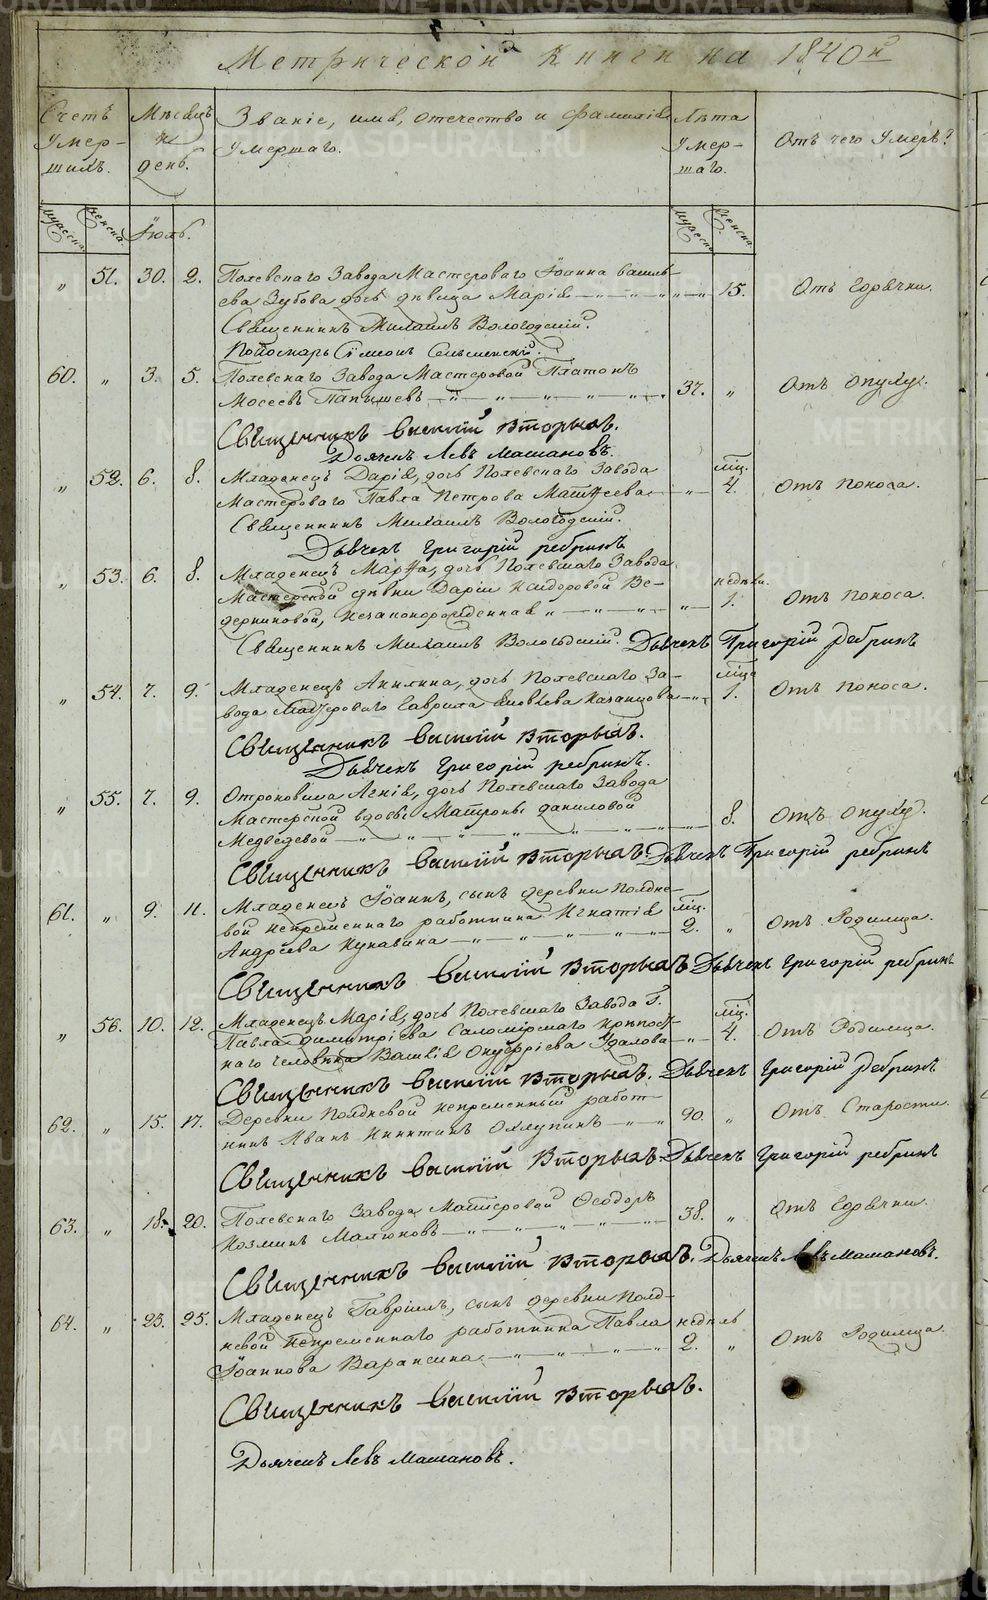 Метрической Книги на 1840й
Счетъ Умер-шихъ. Мѣсяцъ и день. Званіе, имя, отечество и фамилія Умершаго. Лѣта Умер-шаго. Отъ чего Умеръ?
мужеска женска Іюль. мужеска женска
„ 51. 30. 2. Полевскаго Завода Мастероваго Іоанна Василь-
ева Зубова дочь дѣвица Марія „ 15. Отъ Горячки.
Священникъ Михаилъ Вологодскій.
Пономарь Сѵмеонъ
60. „ 3. 5. Полевскаго Завода Мастеровой Платонъ
Мосеевъ Папишевъ 37. „ Отъ Опуху.
Священникъ Василій Вторыхъ.
Дьячекъ Левъ Машановъ.
„ 52. 6. 8. Младенецъ Дарія, дочь Полевскаго Завода
Мастероваго Павла Петрова Матѳеева „ мѣц. 4. Отъ Поноса.
Священникъ Михаилъ Вологодскій.
Дьячекъ Григорій Ребринъ
„ 53. 6. 8. Младенецъ Марѳа, дочь Полевскаго Завода
Мастерской дѣвки Дарьи Исидоровой Ве-
дерниковой, незаконорожденная „ недѣли. 1. Отъ Поноса.
Священникъ Михаилъ Вологодскій. Дьячекъ Григорій Ребринъ
„ 54. 7. 9. Младенецъ Акилина, дочь Полевскаго За-
вода Мастероваго Гаврила Яковлева Казанцова „ мѣца 1. Отъ Поноса.
Священникъ Василій Вторыхъ.
Дьячекъ Григорій Ребринъ.
„ 55. 7. 9. Отроковица Агнія, дочь Полевскаго Завода
Мастерской вдовы Матроны Даниловой
Медведевой „ 8. Отъ Опуху.
Священникъ Василій Вторыхъ Дьячекъ Григорій Ребринъ
61. „ 9. 11. Младенецъ Іоаннъ, сынъ деревни Полдне-
вой непременнаго работника Игнатія мѣц.
Андреева Кунавина 2. „ Отъ Родимца.
Священникъ Василій Вторыхъ Дьячекъ Григорій Ребринъ
„ 56. 10. 12. Младенецъ Марія, дочь Полевскаго Завода Г.
Павла Димитріева Саломірскаго крѣпост-
наго человѣка Василія Онуфріева Удалова „ мѣц. 4. Отъ Родимца.
Священникъ Василій Вторыхъ. Дьячекъ Григорій Ребринъ
62. „ 15. 17. Деревни Полдневой непременный работ-
никъ Иванъ Никитинъ Охлупинъ 90. „ Отъ Старости.
Священникъ Василій Вторыхъ. Дьячекъ Григорій Ребринъ
63. „ 18. 20. Полевскаго Завода Мастеровой Ѳеодоръ
Козминъ Малюковъ 38. „ Отъ Горячки.
Священникъ Василій Вторыхъ. Дьячекъ Левъ Машановъ.
64. „ 23. 25. Младенецъ Гавріилъ, сынъ деревни Полд-
невой Непременнаго работника Павла недѣль
Іоаннова Вараксина 2. „ Отъ Родимца.
Священникъ Василій Вторыхъ.
Дьячекъ Левъ Машановъ.
METRIKI.GASO-URAL.RU